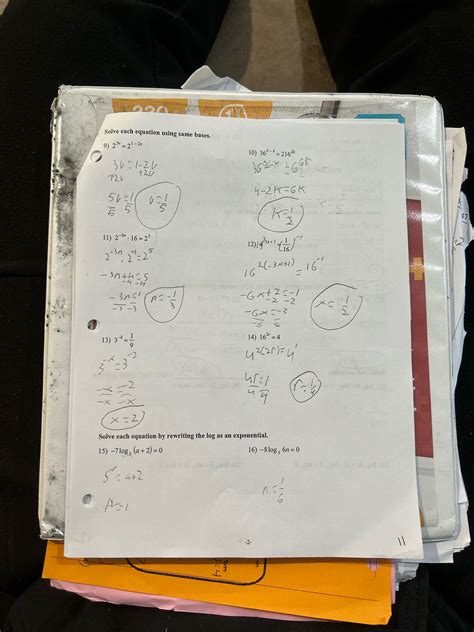 Solve each equation using same bases.
9) 2^{3v} = 2^{1-2v}
3v = 1-2v
+2v +2v
5v = 1
5 5
v = 1/5
10) 36^{2-k} = 216^{2k}
4-2k = 6k
k = 1/2
11) 2^{-3n} · 16 = 2^5
2^{-3n} · 2^4 = 2^5
-3n+4 = 5
-4 -4
-3n = 1
-3 -3
n = -1/3
16^{2(-3x+1)} = 16^{-1}
-6x+2 = -1
-2 -2
-6x = -3
-6 -6
x = 1/2
13) 3^{-x} = 1/9
3^{-x} = 3^{-2}
-x = -2
-x -x
x = 2
14) 16^{2r} = 4
4^{2(2r)} = 4^1
4r = 1
4 4
r = 1/4
Solve each equation by rewriting the log as an exponential.
15) -7log_5 (a+2) = 0
5^0 = a+2
A = 1
16) -8log_5 6n = 0
n = 1/6
-2-
11